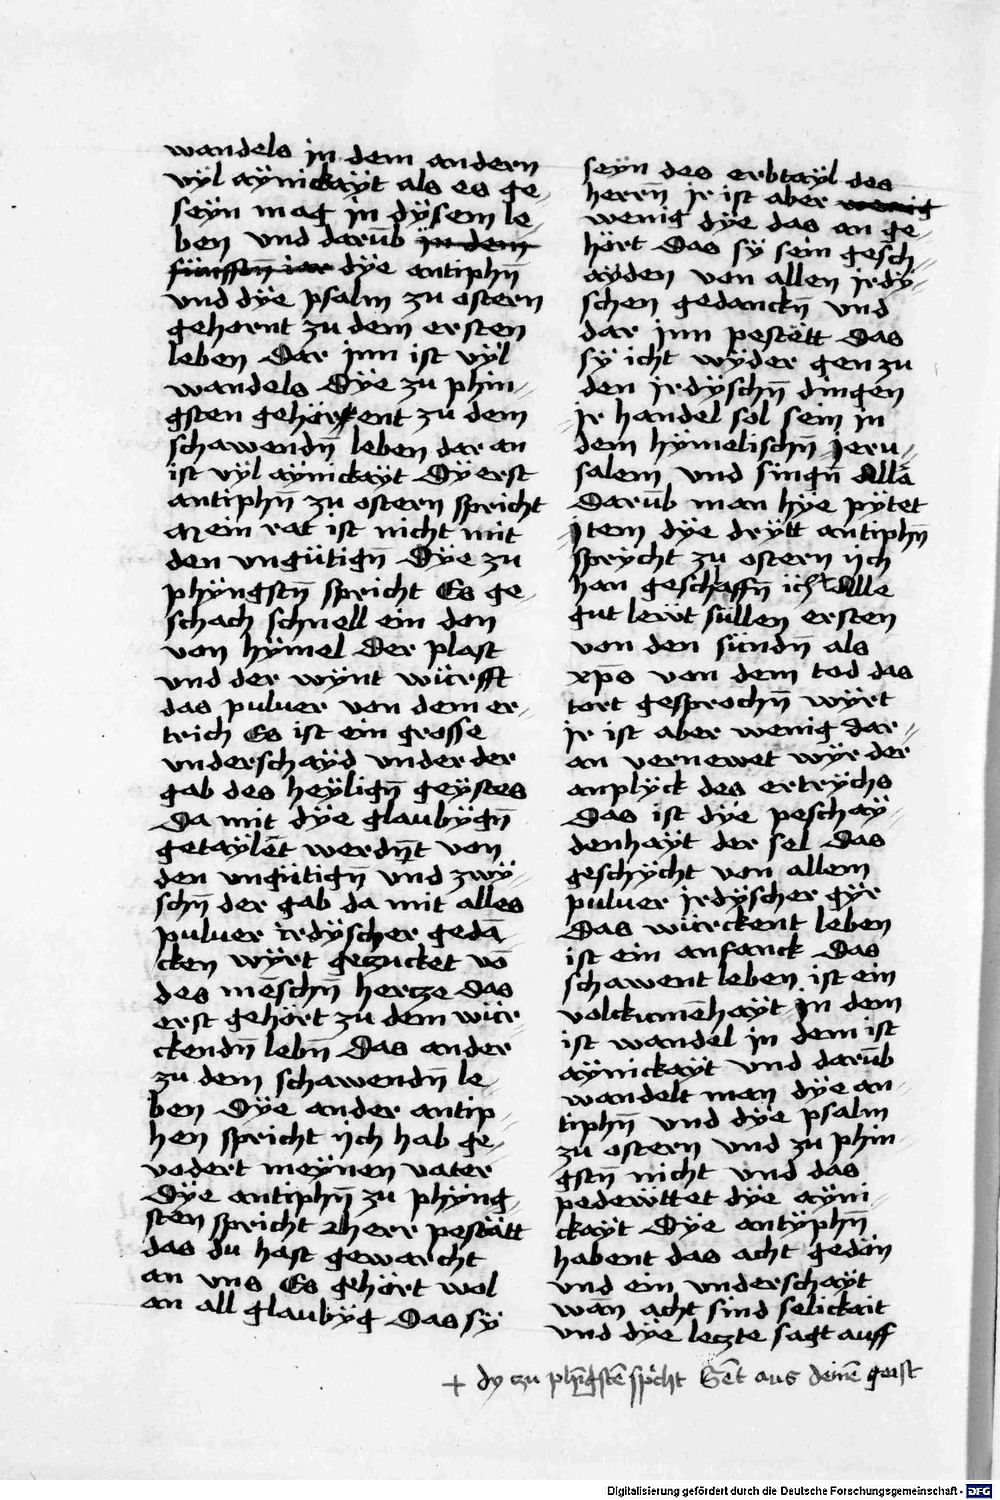 wandels in dem andern
vyl aÿnickaÿt als es ge⸗
seÿn mag in dÿsem le⸗
ben vnd darūb in dem
fünfften iar dÿe antiphn̄
vnd dÿe psalm zu ostern
gehornt zu dem ersten
leben Dar jnn ist vÿl
wandels Dÿe zu phin⸗
gsten gehörent zu dem
schawendn̄ leben dar an
ist vÿl aÿnickaÿt Dÿ erst
antiphn̄ zu ostern spricht
Mein rat ist nicht mit
den vngütign̄ Dÿe zu
phÿngstn̄ spricht Es ge⸗
schach schnell ein don
von hÿmel Der plast
vnd der wÿnt würfft
das puluer von dem er⸗
trich Es ist ein grosse
vnderschaÿd vnder der
gab des heÿlign̄ geÿstes
Da mit dÿe glaubÿgn̄
getaÿlēt werdn̄t von
den vngütign̄ vnd zwÿ⸗
schn̄ der gab da mit alles
puluer irdÿscher gedā
cken wÿrt gezucket vō
des mēschn̄ hercze das
erst gehört zu dem wür⸗
ckendn̄ lebn̄ Das ander
zu dem schawendn̄ le⸗
ben Dÿe ander antip⸗
hen spricht ich hab ge⸗
vodert meÿnen vater
Dÿe antiphn̄ zu phÿng⸗
sten spricht herr pestätt
das du hast gewarcht
an vns Es gehört wol
an all glaubÿg Das sÿ
seÿn des erbtaÿl des
herrn̄ jr ist aber wenig
wenig dÿe das an ge⸗
hört Das sÿ sein gesch⸗
aÿden von allen jrdÿ⸗
schen gedanckn̄ vnd
dar jnn pestëtt Das
sÿ icht wÿder gen zu
den jrdÿschn̄ dingen
jr handel sol sein in
dem hÿmelischn̄ jeru⸗
salem vnd singn̄ Allā
Darūb man hÿe pÿtet
Jtem dÿe drÿtt antiphn̄
sprÿcht zu ostern ich
han geschaffn̄ Alle
gut lewt süllen ersten
von den sündn̄ als
xp̄s von dem tod das
tort gesprochn̄ wÿrt
jr ist aber wenig dar⸗
an vernewet wÿr der
anplÿck des ertrÿchs
Das ist dÿe peschaÿ⸗
denhaÿt der sel Das
geschÿcht von allem
puluer jrdÿscher gÿr
Das würckent leben
ist ein anfanck Das
schawent leben ist ein
volckumēhaÿt jn dem
ist wandel jn dem ist
aÿnickaÿt vnd darūb
wandelt man dÿe an⸗
tiphn̄ vnd dÿe psalm
zu ostern vnd zu phin⸗
gstn̄ nicht vnd das
pedewttet dÿe aÿni⸗
ckaÿt Dÿe antÿphn̄
habent das acht gedön
vnd ein vnderschaÿt
wan acht sind selickait
vnd dÿe leczte sagt auff
+ dy zu phīgstē spricht Sēt aus deinē geist
Digitalisierung gefördert durch die Deutsche Forschungsgemeinschaft - DFG